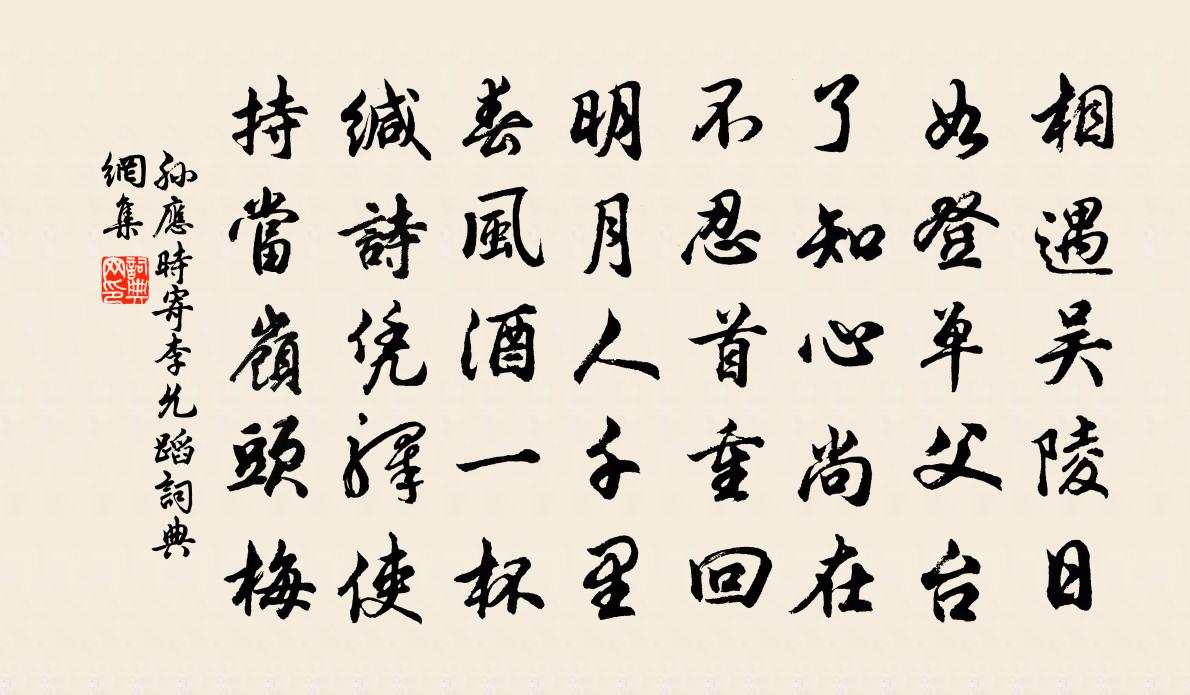 相遇吴陵日
如登单父台
了知心尚在
不忍首重回
明月人千里
春風酒一杯
缄詩凭驛使
持當嶺頭梅
孙應時寄李允蹈詞典
網集
詞典
网印